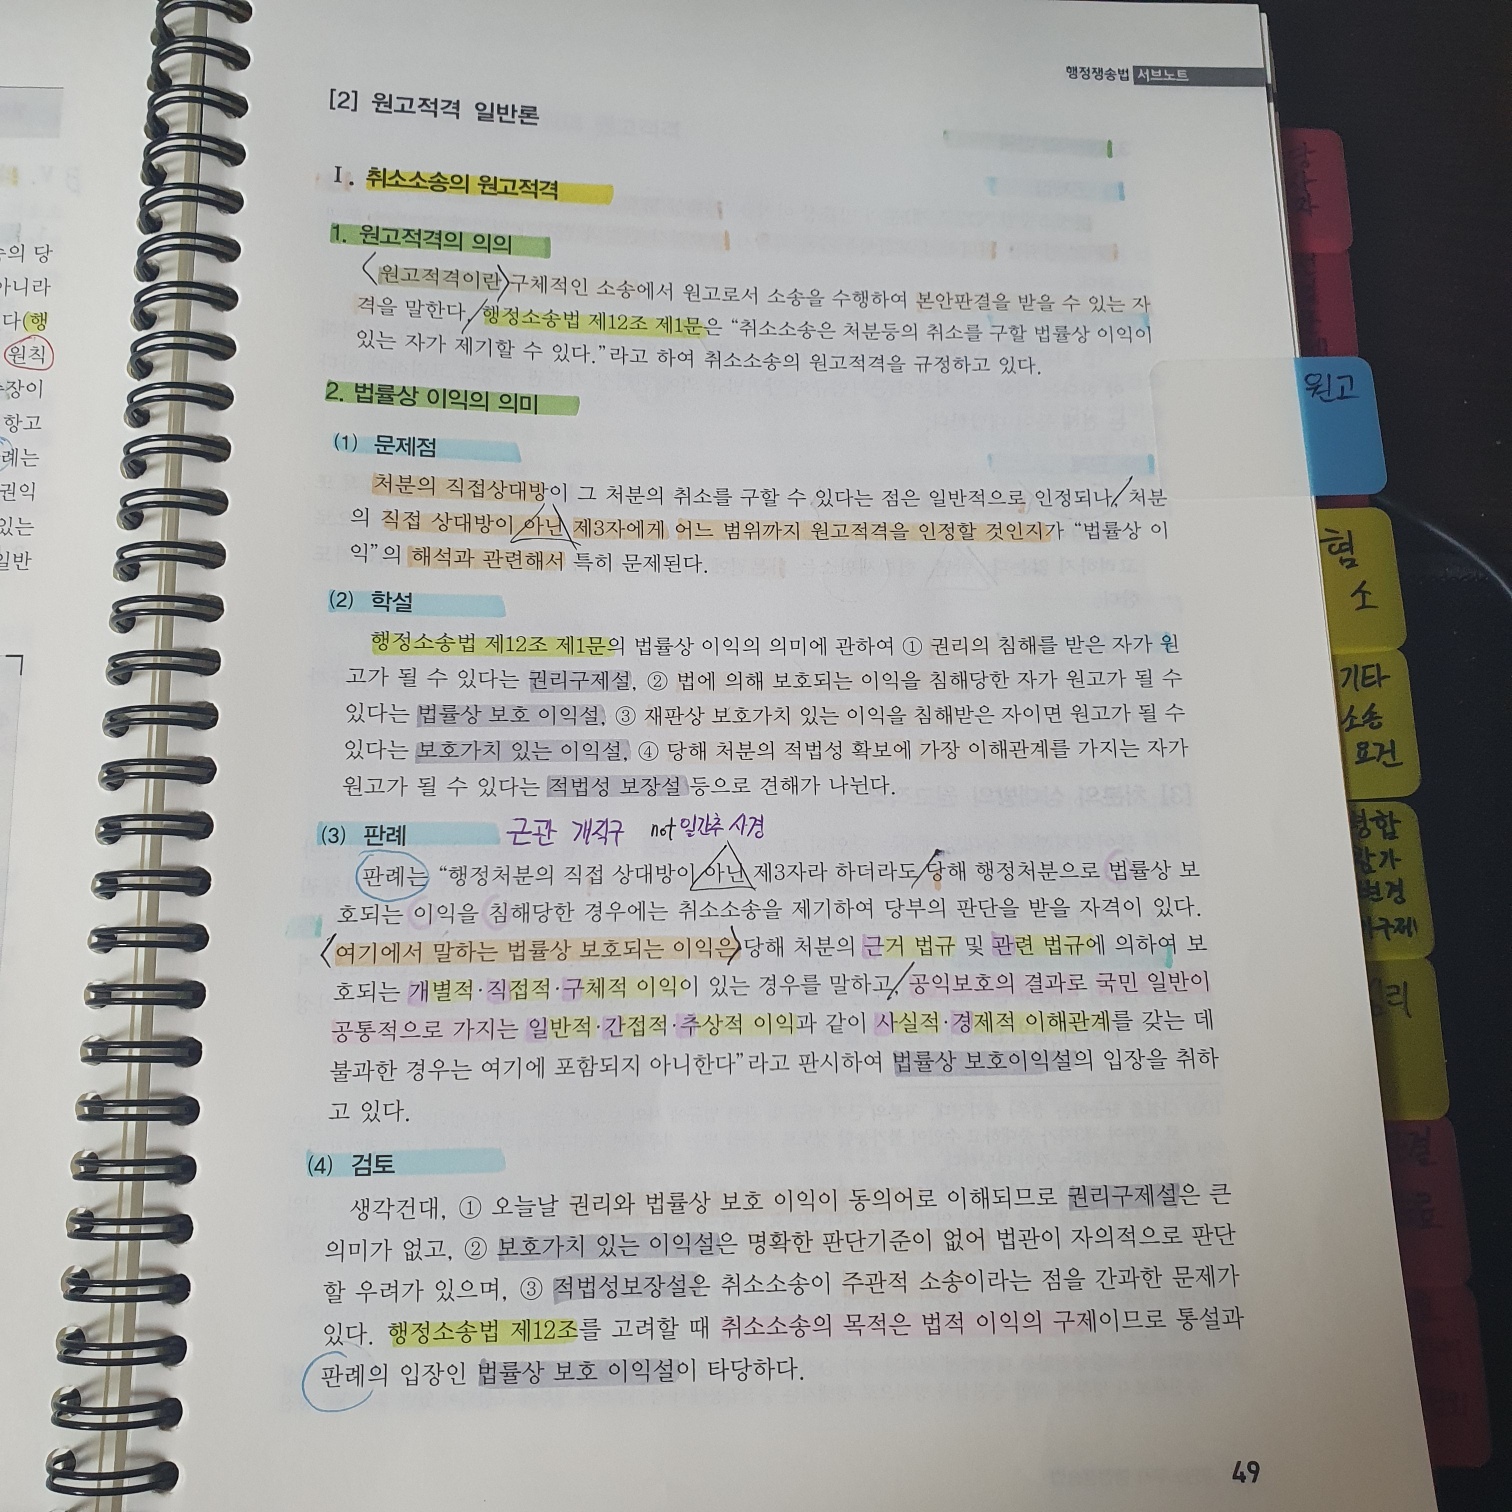 행정쟁송법 서브노트
[2] 원고적격 일반론
Ⅰ. 취소소송의 원고적격
1. 원고적격의 의의
원고적격이란 구체적인 소송에서 원고로서 소송을 수행하여 본안판결을 받을 수 있는 자
격을 말한다. 행정소송법 제12조 제1문은 “취소소송은 처분등의 취소를 구할 법률상 이익이
있는 자가 제기할 수 있다.”라고 하여 취소소송의 원고적격을 규정하고 있다.
2. 법률상 이익의 의미
(1) 문제점
처분의 직접상대방이 그 처분의 취소를 구할 수 있다는 점은 일반적으로 인정되나, 처분
의 직접 상대방이 아닌 제3자에게 어느 범위까지 원고적격을 인정할 것인지가 “법률상 이
익”의 해석과 관련해서 특히 문제된다.
(2) 학설
행정소송법 제12조 제1문의 법률상 이익의 의미에 관하여 ① 권리의 침해를 받은 자가 원
고가 될 수 있다는 권리구제설, ② 법에 의해 보호되는 이익을 침해당한 자가 원고가 될 수
있다는 법률상 보호 이익설, ③ 재판상 보호가치 있는 이익을 침해받은 자이면 원고가 될 수
있다는 보호가치 있는 이익설, ④ 당해 처분의 적법성 확보에 가장 이해관계를 가지는 자가
원고가 될 수 있다는 적법성 보장설 등으로 견해가 나뉜다.
(3) 판례 근관 개직구 not 일간추 사경
판례는 “행정처분의 직접 상대방이 아닌 제3자라 하더라도 당해 행정처분으로 법률상 보
호되는 이익을 침해당한 경우에는 취소소송을 제기하여 당부의 판단을 받을 자격이 있다.
여기에서 말하는 법률상 보호되는 이익은 당해 처분의 근거 법규 및 관련 법규에 의하여 보
호되는 개별적·직접적·구체적 이익이 있는 경우를 말하고, 공익보호의 결과로 국민 일반이
공통적으로 가지는 일반적·간접적·추상적 이익과 같이 사실적·경제적 이해관계를 갖는 데
불과한 경우는 여기에 포함되지 아니한다”라고 판시하여 법률상 보호이익설의 입장을 취하
고 있다.
(4) 검토
생각건대, ① 오늘날 권리와 법률상 보호 이익이 동의어로 이해되므로 권리구제설은 큰
의미가 없고, ② 보호가치 있는 이익설은 명확한 판단기준이 없어 법관이 자의적으로 판단
할 우려가 있으며, ③ 적법성보장설은 취소소송이 주관적 소송이라는 점을 간과한 문제가
있다. 행정소송법 제12조를 고려할 때 취소소송의 목적은 법적 이익의 구제이므로 통설과
판례의 입장인 법률상 보호 이익설이 타당하다.
49
원고
협
소
기타
소송
요건
변경
의 당
아니라
다(행
원칙
장이
항고
례는
권익
있는
일반